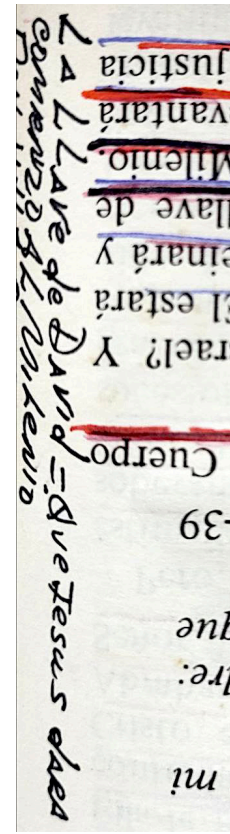 mi
dre:
que
-39
Cuerpo
rael? Y
El estará
einará y
llave de
Milenio.
vantará
justicia
LA LLAve de DAvid = Que Jesus dARA
comienzo AL Milenio